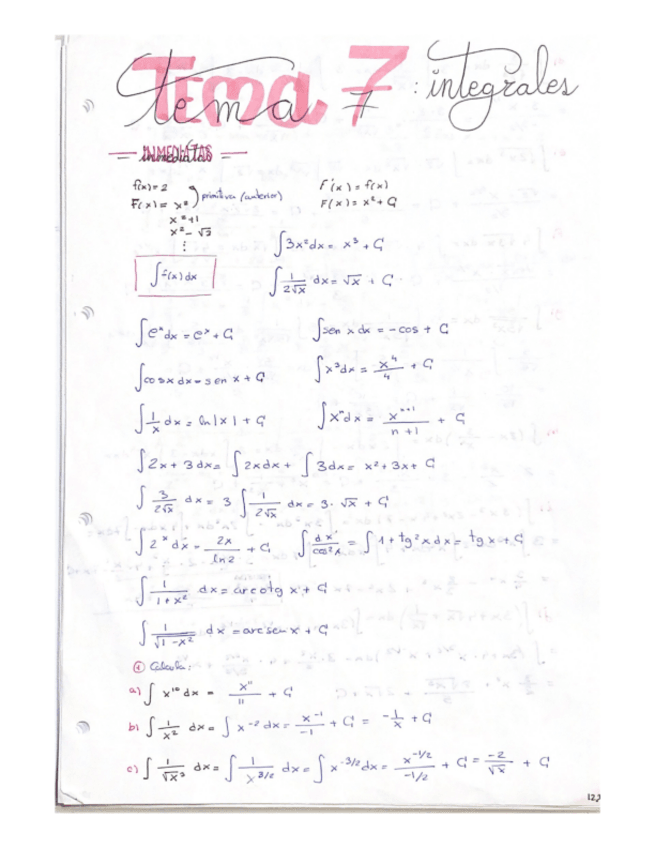 Tema 7 : integrales
INMEDIATAS
f(x) = 2
F(x) = x² primitiva (anterior)
x² + 1
x² - √3
⋮
F'(x) = f(x)
F(x) = x² + C
∫ f(x) dx
∫ 3x² dx = x³ + C
∫ 1/(2√x) dx = √x + C
∫ eˣ dx = eˣ + C
∫ sen x dx = - cos + C
∫ cos x dx = sen x + C
∫ x³ dx = x⁴/4 + C
∫ 1/x dx = ln |x| + C
∫ xⁿ dx = xⁿ⁺¹/(n+1) + C
∫ 2x + 3 dx = ∫ 2x dx + ∫ 3 dx = x² + 3x + C
∫ 3/(2√x) dx = 3 ∫ 1/(2√x) dx = 3 · √x + C
∫ 2ˣ dx = 2x/ln 2 + C
∫ dx/cos²x = ∫ 1 + tg²x dx = tg x + C
∫ 1/(1 + x²) dx = arcotg x + C
∫ 1/√(1 - x²) dx = arcsen x + C
① Calcula:
a) ∫ x¹⁰ dx = x¹¹/11 + C
b) ∫ 1/x² dx = ∫ x⁻² dx = x⁻¹/-1 + C = -1/x + C
c) ∫ 1/√x³ dx = ∫ 1/x^(3/2) dx = ∫ x^(-3/2) dx = x^(-1/2)/(-1/2) + C = -2/√x + C